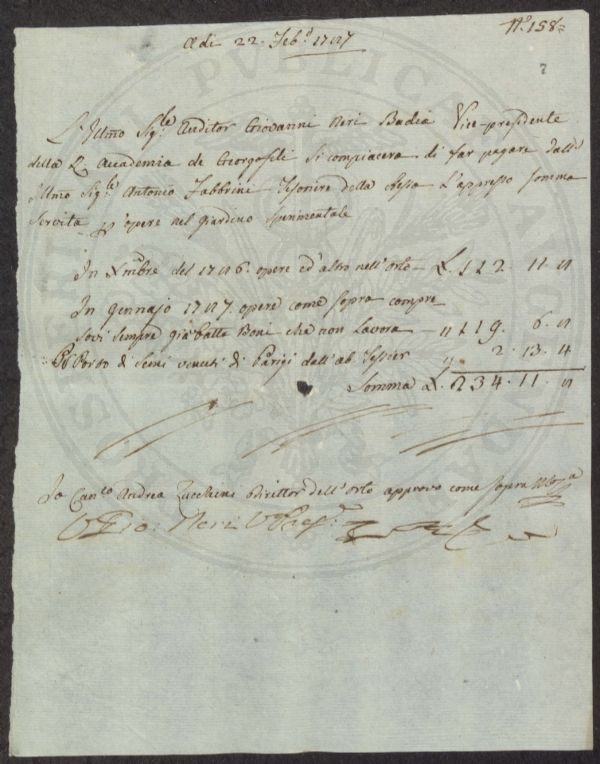 N.o 158=
Adi 22. Feb.o 1787
7
L'Illmo Sig.re Auditor Giovanni Neri Badia Vice-presidente
della R. Accademia de Georgofili si compiacerà di far pagare dall'
Illmo Sig.re Antonio Fabbrini Tesorire della stessa l'appresso somma
servita p opere nel giardino sperimentale
In Xmbre del 1786. opere ed'altro nell'orto — £. 112. 11. 8
In Gennajo 1787. opere come sopra compre_
sovi sempre gia Batta Boni che non Lavora — " 119. 6. 8
P Porto di Semi venuti di Parigi dall'ab Tessier " 2. 13. 4
Somma £. 234. 11. 8
Io Can.co Andrea Zucchini Direttor dell'Orto approvo come sopra
V Gio: Neri V Presid.